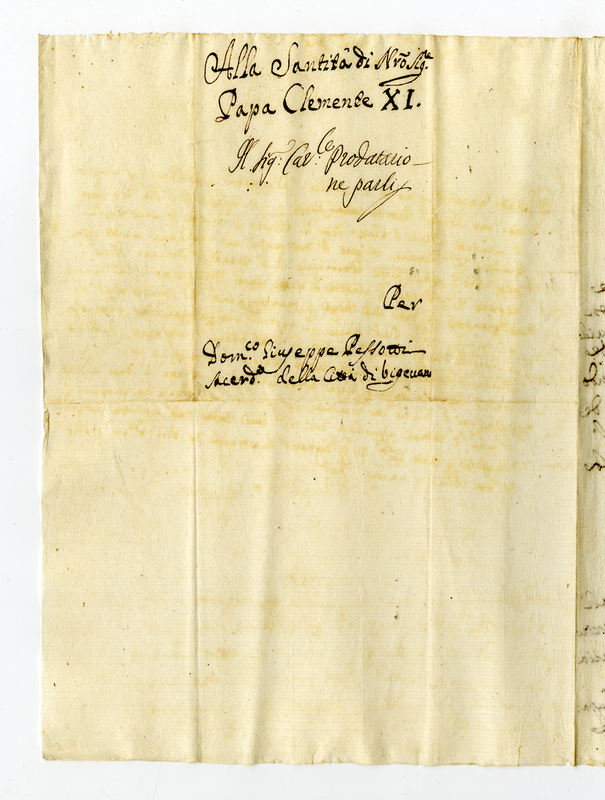 Alla Santità di Nrõ Sigre
Papa Clemente XI.
Il Sigr. Carle Prodatario
ne parli
Per
Domco. Giuseppe Pessotti
Sacerde. della Città di bigevano